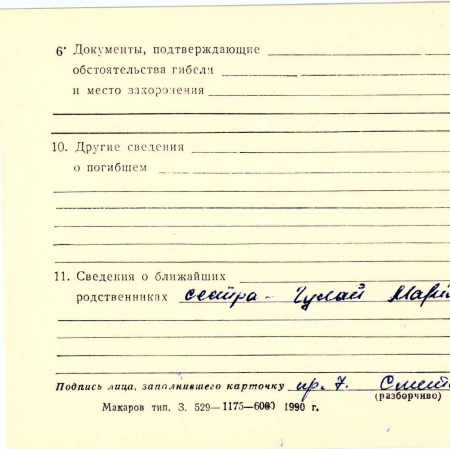 6· Документы, подтверждающие
обстоятельства гибели
и место захоронения
10. Другие сведения
о погибшем
11. Сведения о ближайших
родственниках сестра - Гулай
Подпись лица, заполнившего карточку
(разборчиво)
Макаров тип. З. 529—1175—6000 1990 г.